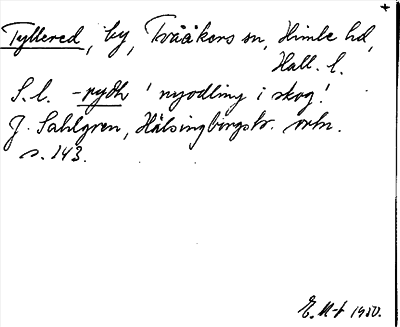 +
Tyllered, by, Tvååkers sn, Himle hd,
Hall. l.
S. l. -rydh 'nyodling i skog'.
J. Sahlgren, Hälsingborgstr. ortn.
s. 143.
E. M-t 1950.